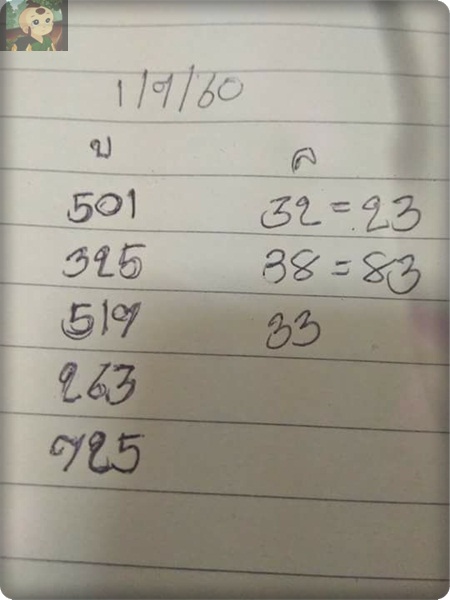 1/9/60
บ ล
501 32=23
325 38=83
519 33
263
925